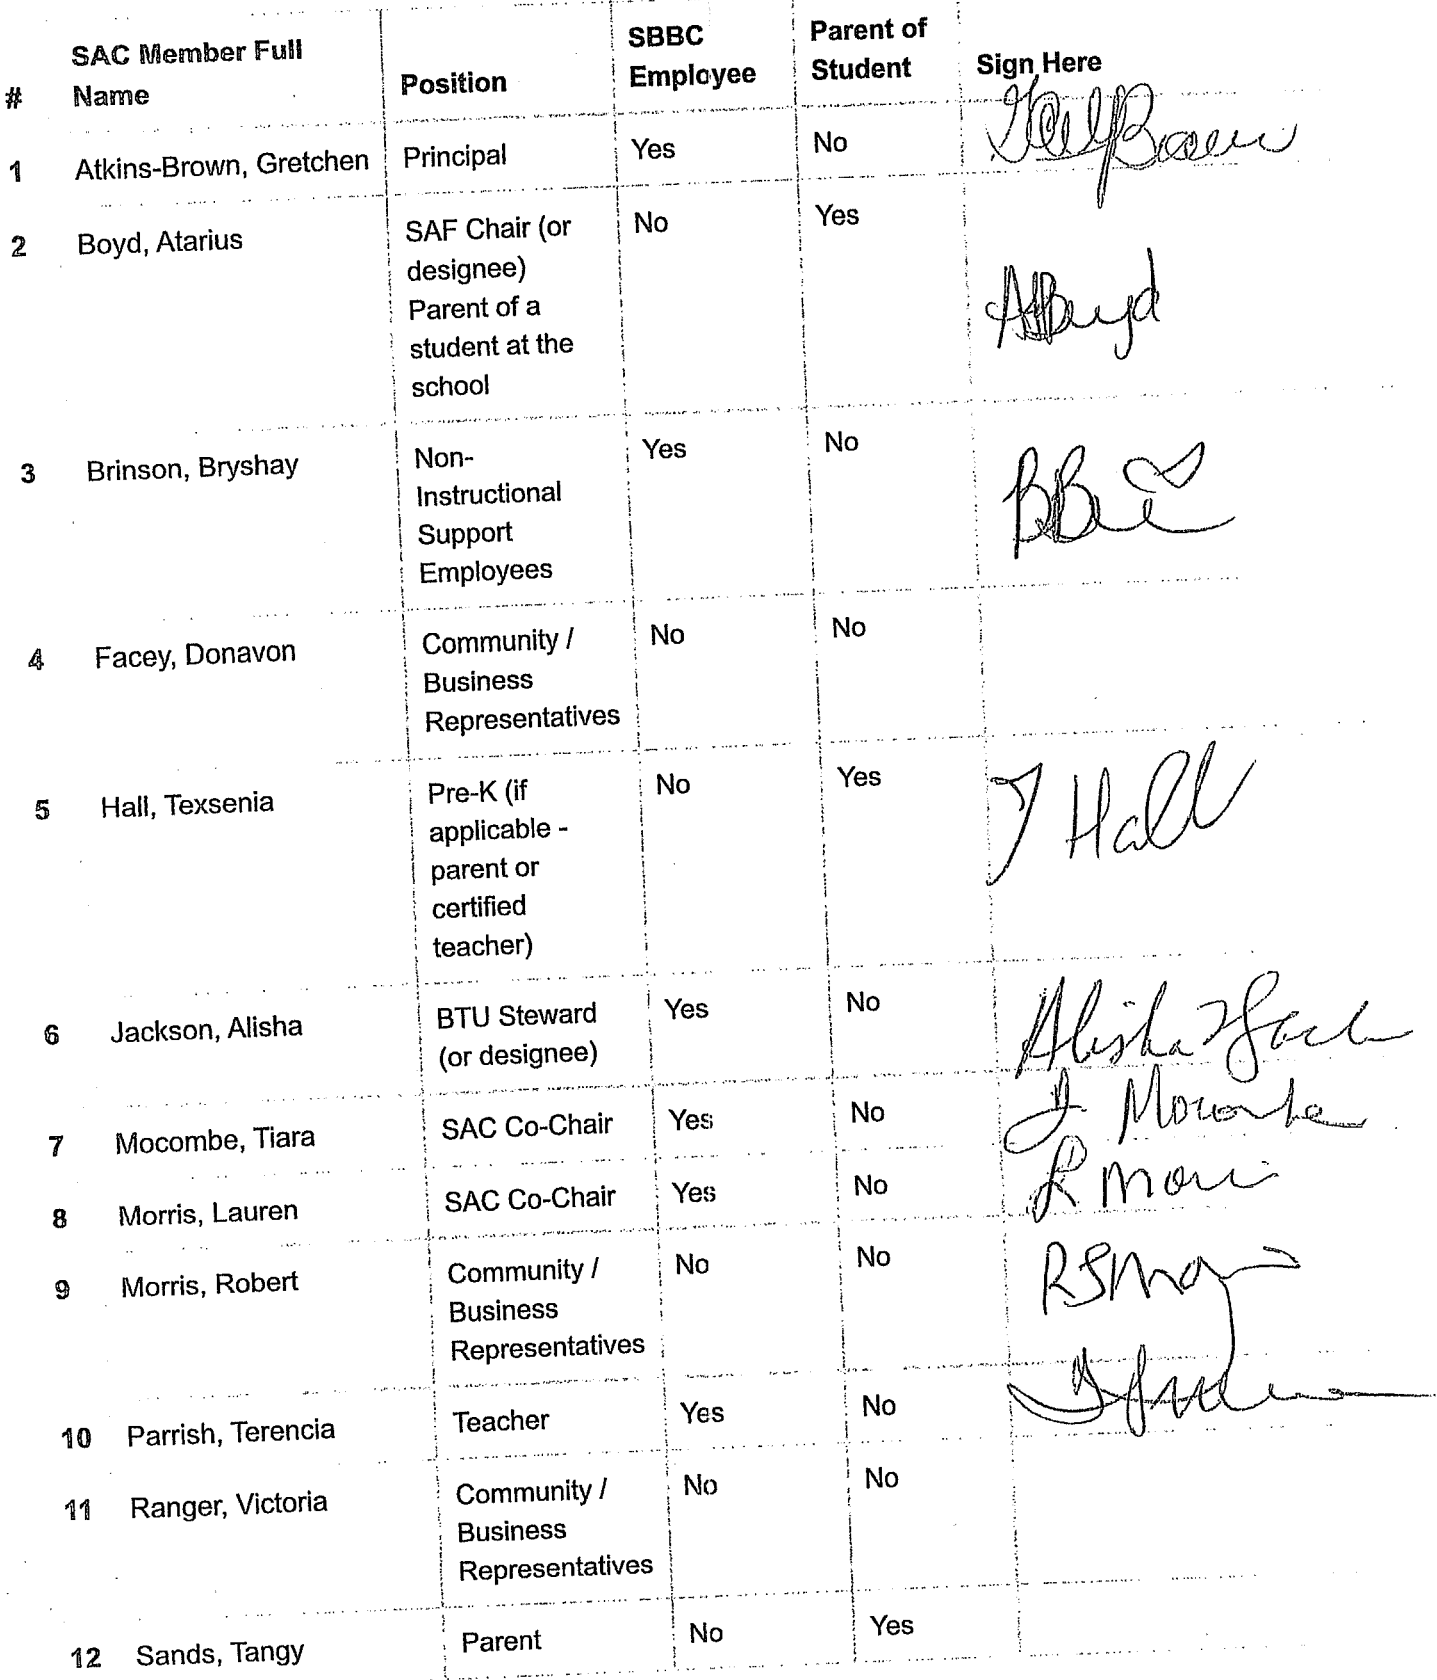 # SAC Member Full Name Position SBBC Employee Parent of Student Sign Here
1 Atkins-Brown, Gretchen Principal Yes No
2 Boyd, Atarius SAF Chair (or No Yes
designee)
Parent of a
student at the
school
ABoyd
3 Brinson, Bryshay Non- Yes No
Instructional
Support
Employees
4 Facey, Donavon Community / No No
Business
Representatives
5 Hall, Texsenia Pre-K (if No Yes T Hall
applicable -
parent or
certified
teacher)
6 Jackson, Alisha BTU Steward Yes No Alisha
(or designee)
7 Mocombe, Tiara SAC Co-Chair Yes No T Mocombe
8 Morris, Lauren SAC Co-Chair Yes No L Morris
9 Morris, Robert Community / No No
Business
Representatives
10 Parrish, Terencia Teacher Yes No
11 Ranger, Victoria Community / No No
Business
Representatives
12 Sands, Tangy Parent No Yes